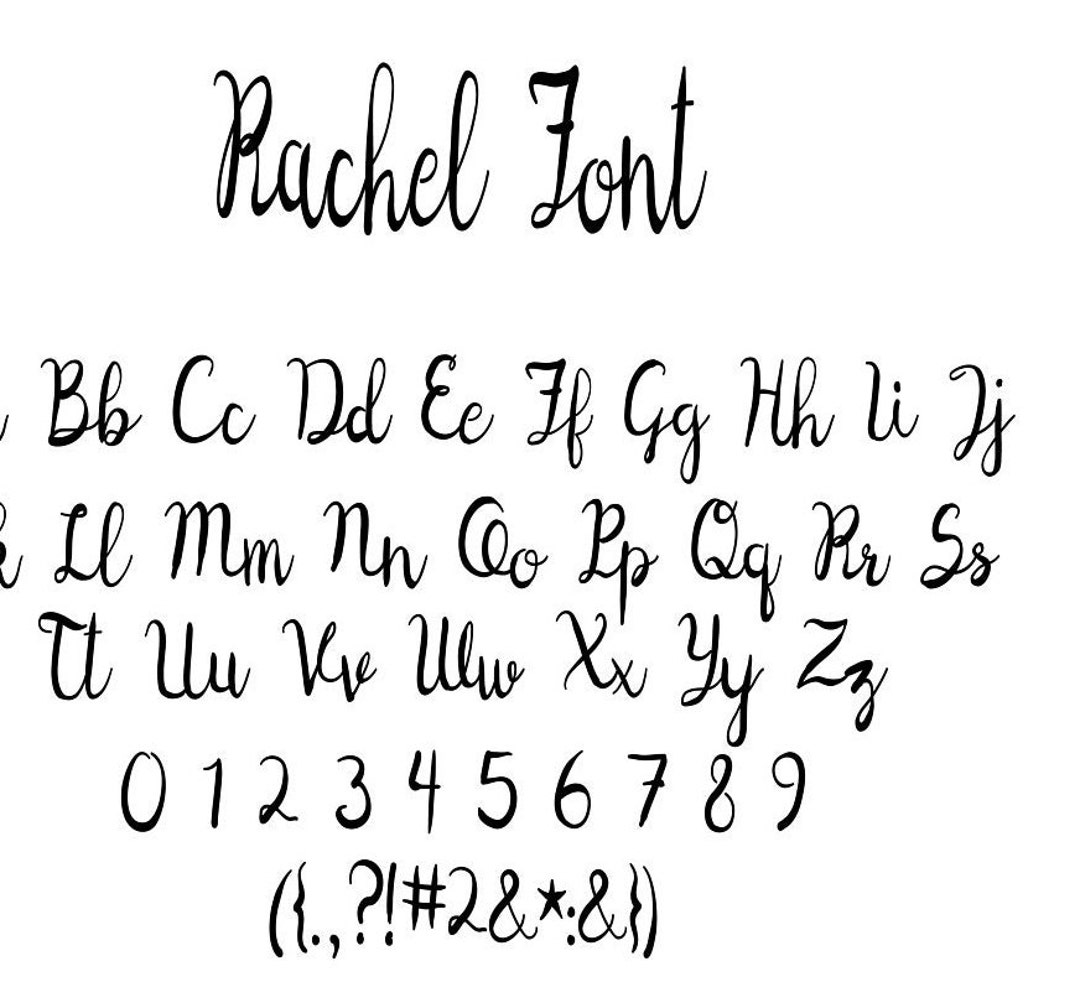 Rachel Font
Bb Cc Dd Ee Ff Gg Hh Ii Jj
Ll Mm Nn Oo Pp Qq Rr Ss
Tt Uu Vv Ww Xx Yy Zz
0 1 2 3 4 5 6 7 8 9
({.,?!#2&*:&})